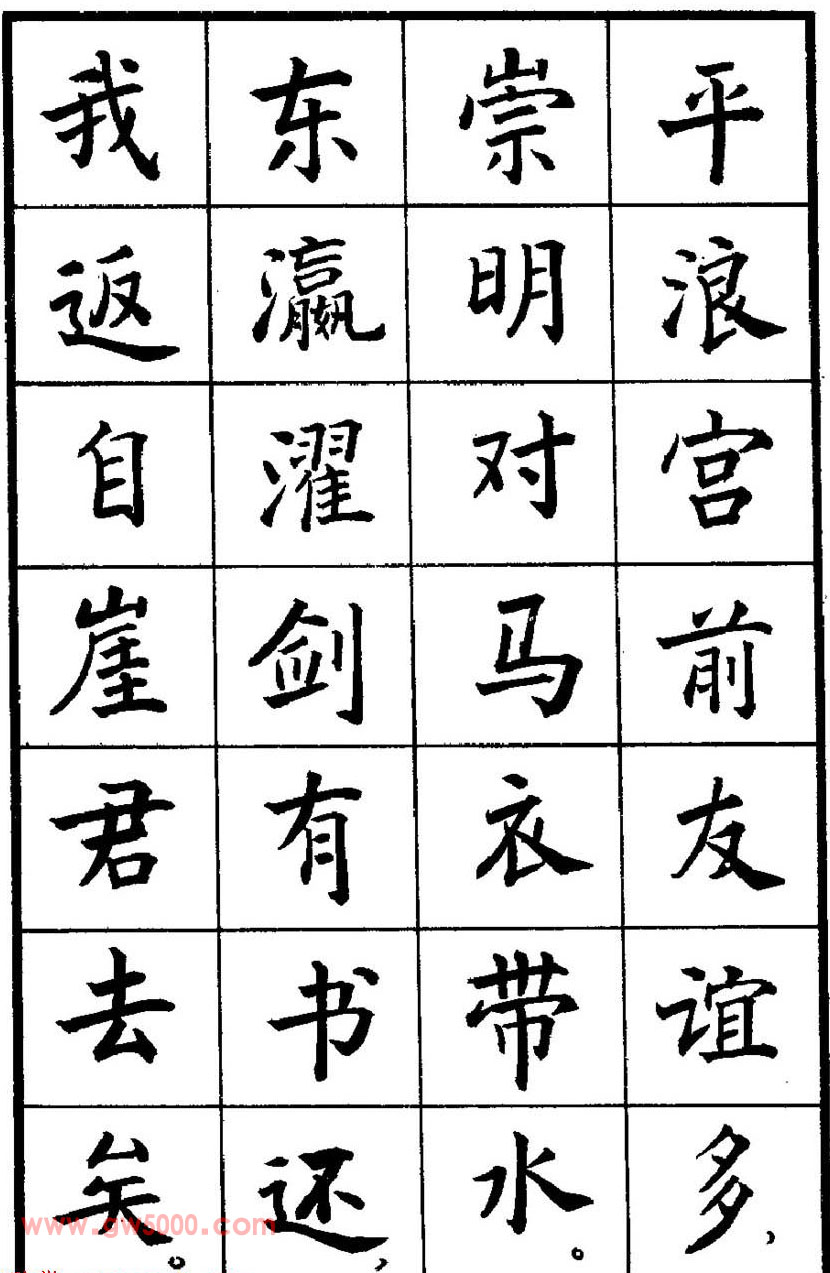 平浪宫前友谊多，
崇明对马衣带水。
东瀛濯剑有书还，
我返自崖君去矣。
www.gw5000.com